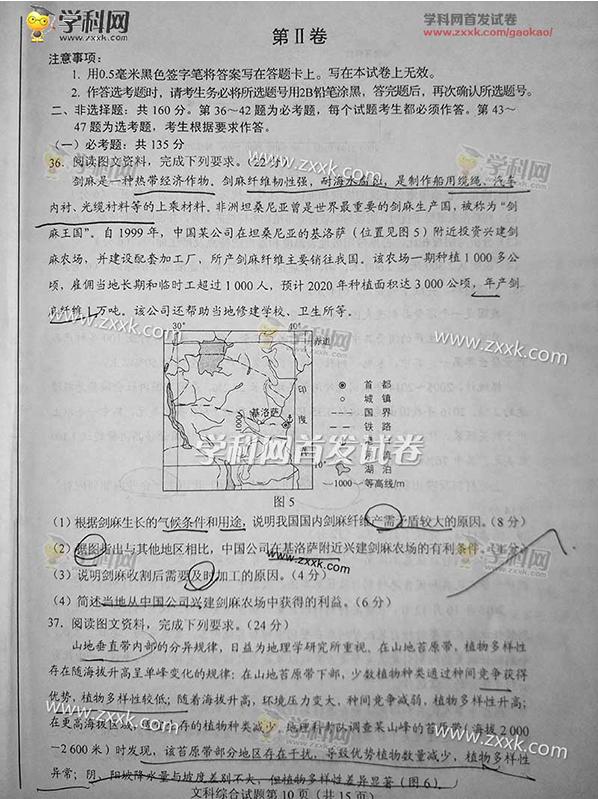 学科网
www.zxxk.com
学科网首发试卷
www.zxxk.com/gaokao/
第Ⅱ卷
注意事项：
1. 用0.5毫米黑色签字笔将答案写在答题卡上。写在本试卷上无效。
2. 作答选考题时，请考生务必将所选题号用2B铅笔涂黑，答完题后，再次确认所选题号。
二、非选择题：共 160 分。第 36～42 题为必考题，每个试题考生都必须作答。第 43～
47 题为选考题，考生根据要求作答。
（一）必考题：共 135 分
36. 阅读图文资料，完成下列要求。（22 分）
剑麻是一种热带经济作物。剑麻纤维韧性强，耐海水腐蚀，是制作船用缆绳、汽车
内衬、光缆衬料等的上乘材料。非洲坦桑尼亚曾是世界最重要的剑麻生产国，被称为“剑
麻王国”。自 1999 年，中国某公司在坦桑尼亚的基洛萨（位置见图 5）附近投资兴建剑
麻农场，并建设配套加工厂，所产剑麻纤维主要销往我国。该农场一期种植 1 000 多公
顷，雇佣当地长期和临时工超过 1 000 人，预计 2020 年种植面积达 3 000 公顷，年产剑
麻纤维 1 万吨。该公司还帮助当地修建学校、卫生所等。
30° 40°
赤道
印
度
洋
基洛萨
1000
10°
首都
城镇
国界
铁路
湖泊
—1000— 等高线/m
图 5
（1）根据剑麻生长的气候条件和用途，说明我国国内剑麻纤维产需矛盾较大的原因。（8 分）
（2）据图指出与其他地区相比，中国公司在基洛萨附近兴建剑麻农场的有利条件。（4 分）
（3）说明剑麻收割后需要及时加工的原因。（4 分）
（4）简述当地从中国公司兴建剑麻农场中获得的利益。（6 分）
37. 阅读图文资料，完成下列要求。（24 分）
山地垂直带内部的分异规律，日益为地理学研究所重视。在山地首原带，植物多样性
存在随海拔升高呈单峰变化的规律：在山地首原带下部，少数植物种类通过种间竞争获得
优势，植物多样性较低；随着海拔升高，环境压力变大，种间竞争减弱，植物多样性升高；
在更高海拔区域，适宜生存的植物种类减少。地理科考队调查某山峰的首原带（海拔 2 000
～2 600 米）时发现，该首原带部分地区存在干扰，导致优势植物数量减少，植物多样性
异常；阴、阳坡降水量与坡度差别不大，但植物多样性差异显著（图 6）。
文科综合试题第 10 页（共 15 页）